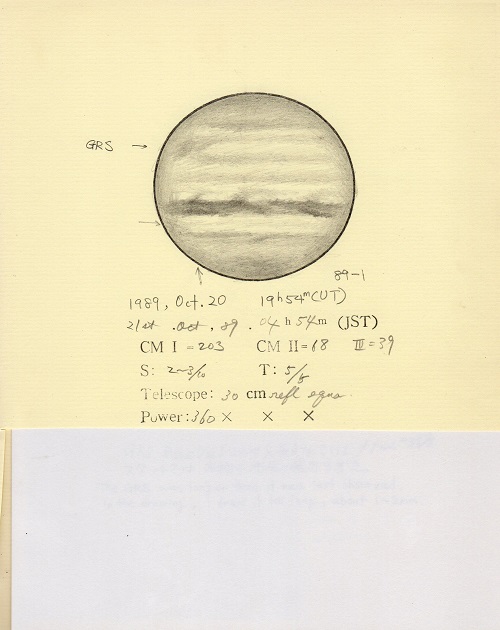 GRS →
89-1
1989, Oct. 20 19h54m(UT)
21st. Oct, 89. 04h54m (JST)
CM I = 203 CM II = 68 III = 39
S: 2~3/10 T: 5/5
Telescope: 30 cm refl equa.
Power: 360 × × ×